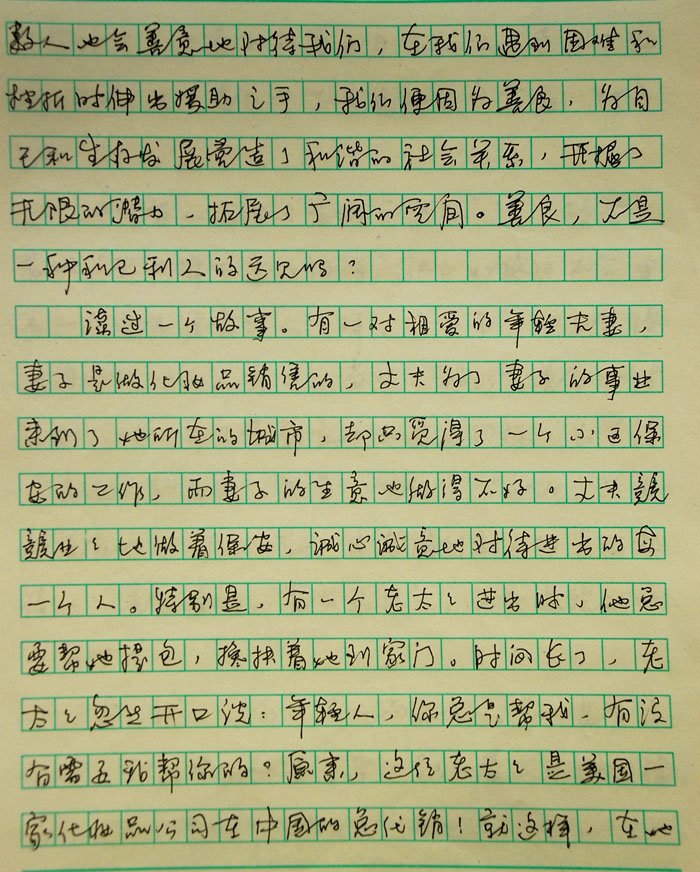 数人也会善意地对待我们，在我们遇到困难和
挫折时伸出援助之手，我们便因为善良，为自
己和生存发展营造了和谐的社会关系，开掘了
无限的潜力，拓展了广阔的空间。善良，不是
一种利己利人的远见吗？
读过一个故事。有一对相爱的年轻夫妻，
妻子是做化妆品销售的，丈夫为了妻子的事业
来到了她所在的城市，却只觅得了一个小区保
安的工作，而妻子的生意也做得不好。丈夫兢
兢业业地做着保安，诚心诚意地对待进出的每
一个人。特别是，有一个老太太进出时，他总
要帮她提包，搀扶着她到家门。时间长了，老
太太忽然开口说：年轻人，你总是帮我，有没
有需要我帮你的？原来，这位老太太是美国一
家化妆品公司在中国的总代销！就这样，在她